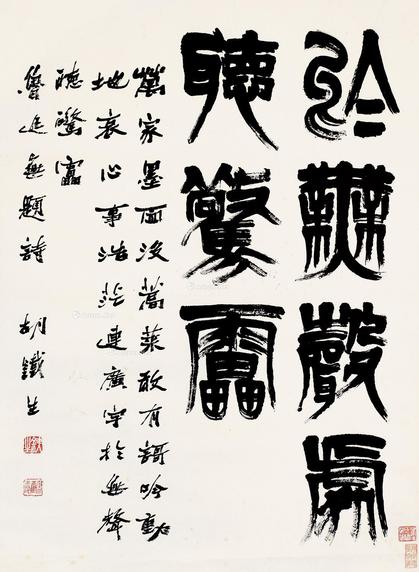 於無聲處
聽驚靁
萬家墨面沒蒿萊敢有謌吟動
地哀心事浩茫連廣宇於無聲
聽驚靁
魯迅無題詩 胡鐵生